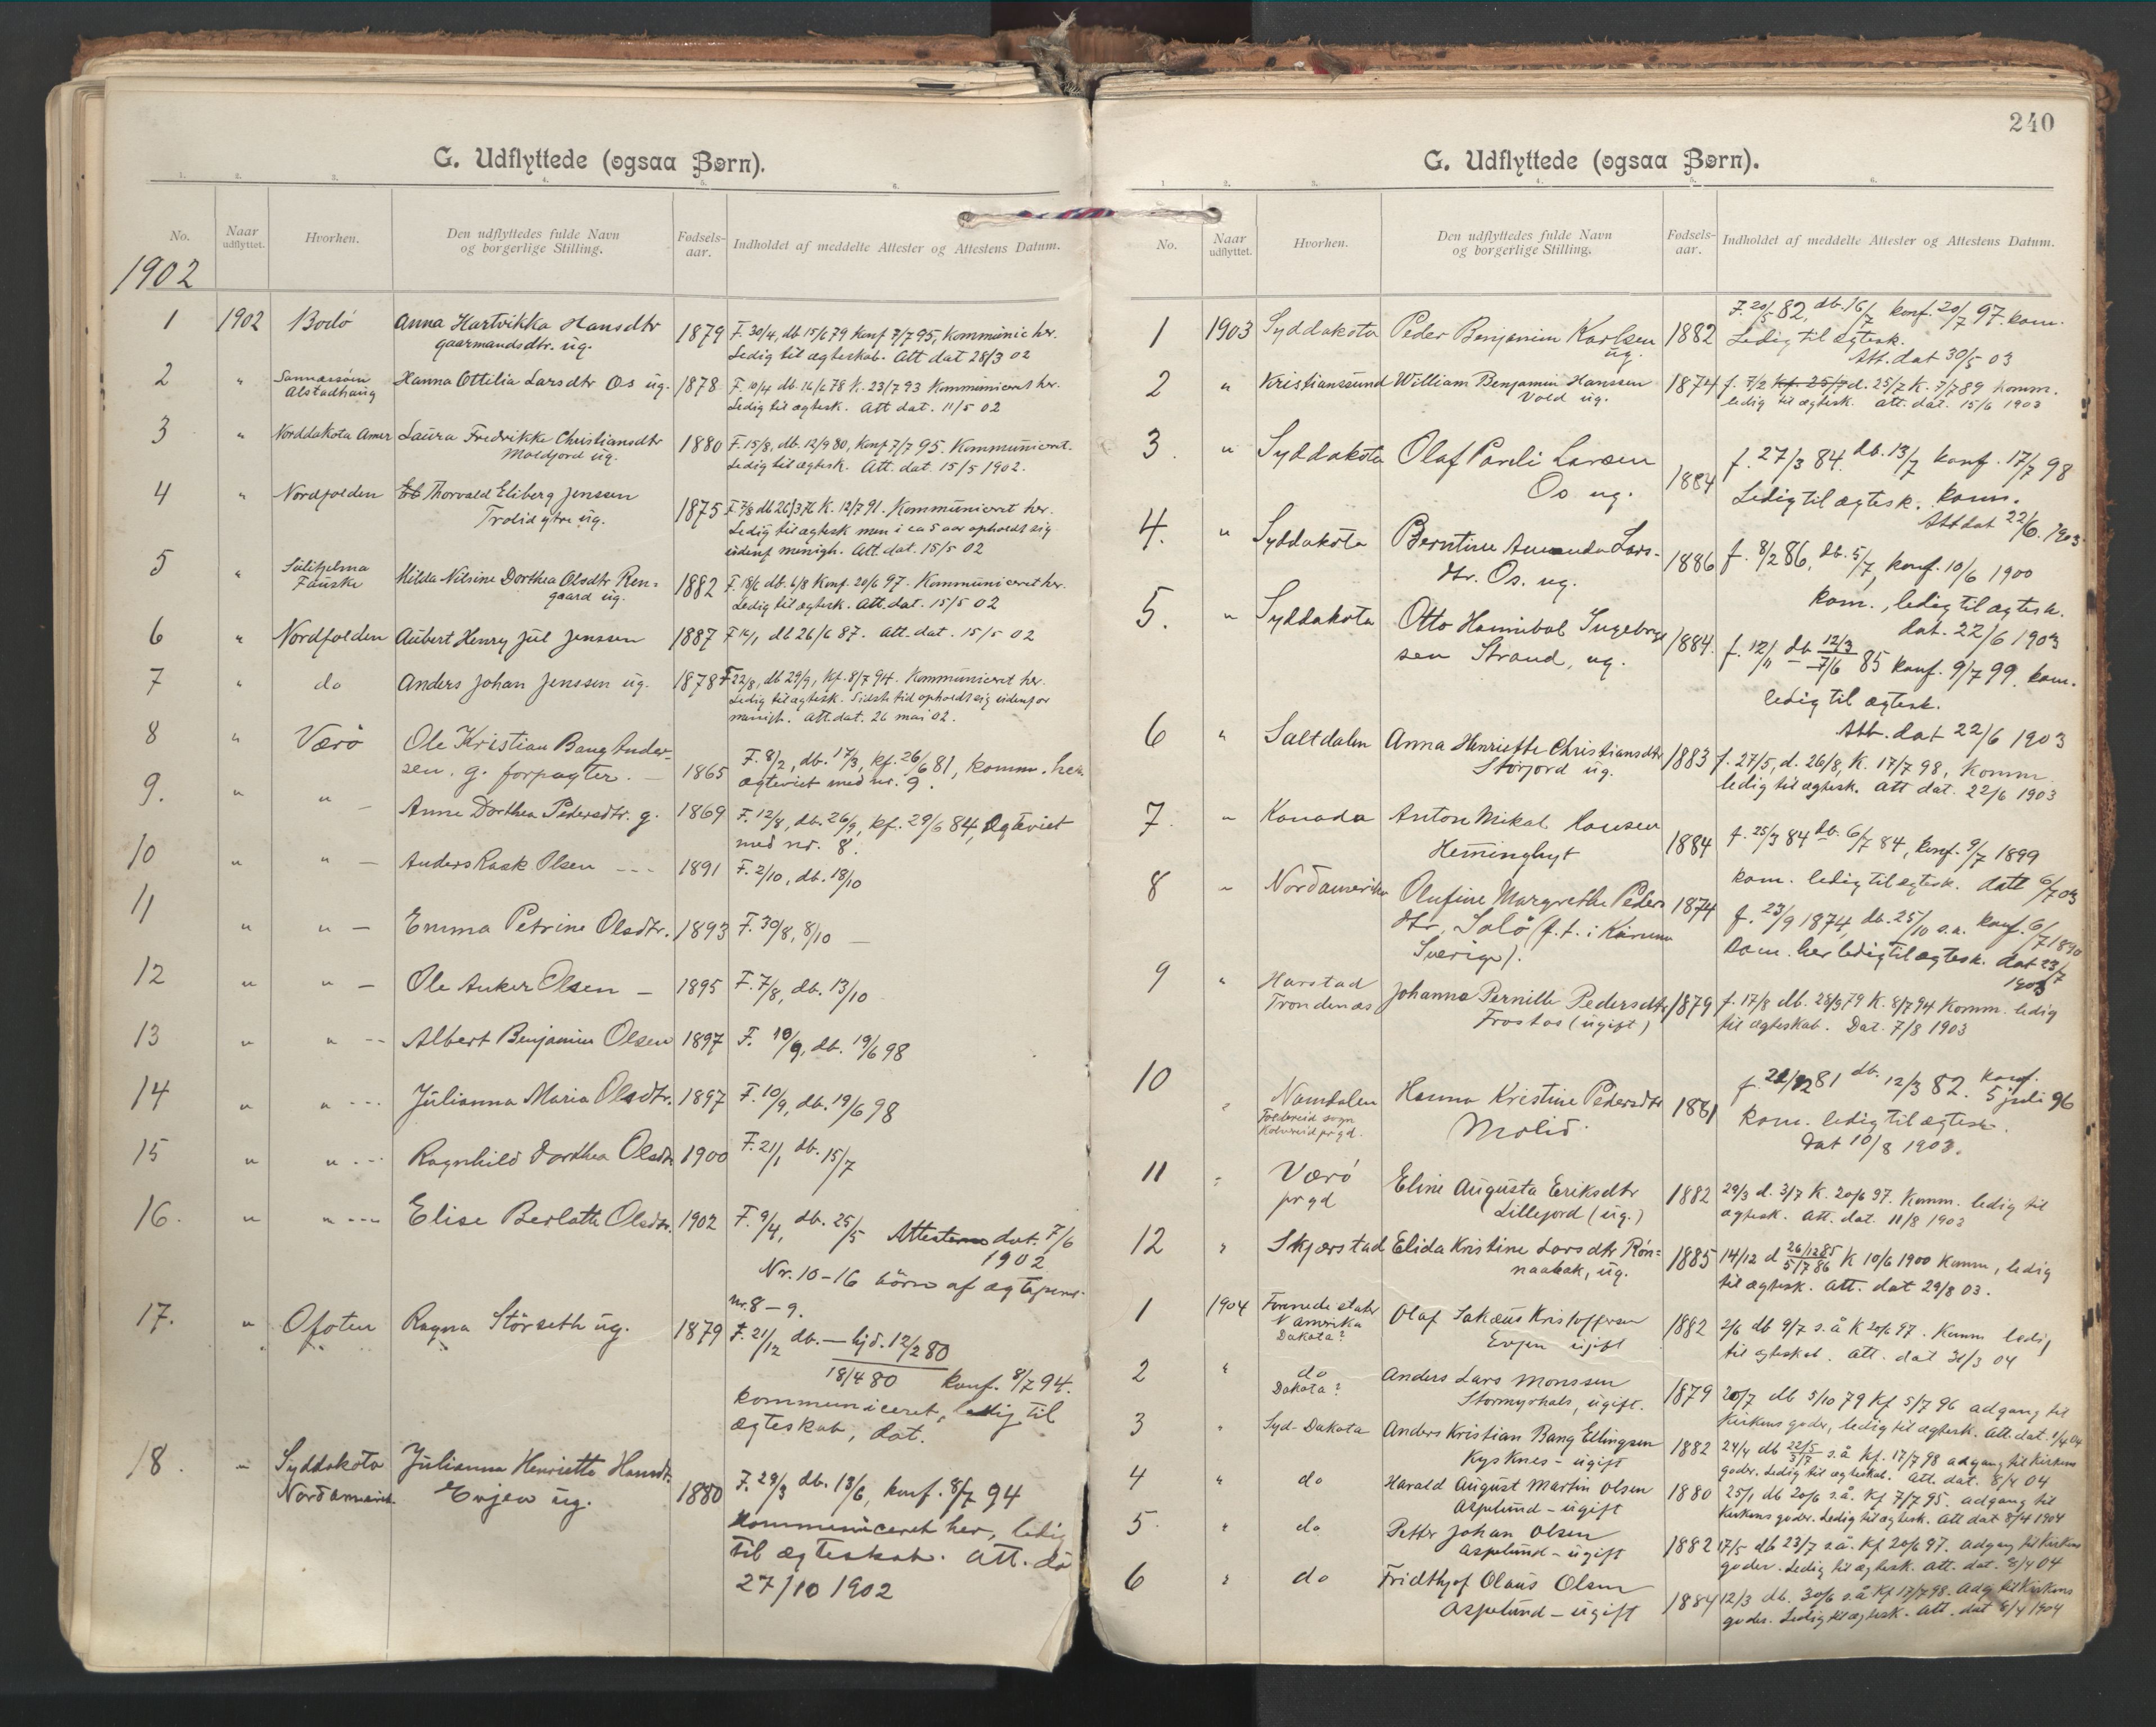 G. Udflyttede (ogsaa Børn).
1. 2. 3. 4. 5. 6.
No. Naar udflyttet. Hvorhen. Den udflyttedes fulde Navn og borgerlige Stilling. Fødsels-aar. Indholdet af meddelte Attester og Attestens Datum.
1902
1 1902 Bodø Anna Hartvikka Hansdtr 1879 F. 30/4, db 15/6 79 Konf 7/7 95, Kommunic her.
gaarmandsdtr. ug. Ledig til ægteskab. Att dat 28/3 02
2 " Alstadhaug Hanna Ottilia Larsdtr Os ug. 1878 F. 10/4 db. 16/6 78 K. 23/7 93 Kommuniceret her.
Ledig til ægtesk. Att dat. 11/5 02
3 " Norddakota Amer Laura Fredrikke Christiansdtr 1880 F. 15/8, db. 12/9 80, Konf 7/7 95. Kommuniceret.
Moldjord ug. Ledig til ægtesk. Att. dat. 15/5 1902.
4 " Nordfolden Thorvald Eliberg Jenssen 1875 db 26/3 76 K. 12/7 91. Kommuniceret her.
Trolid ytre ug. Ledig til ægtesk men i ca 5 aar opholdt sig
udenf menigh. Att. dat. 15/5 02
5 " Sulitjelma
Fauske Hilda Nilsine Dorthea Olsdtr Ren=
gaard ug. 1882 F. 18/6 db. 6/8 Konf. 20/6 97. Kommuniceret her.
Ledig til ægtesk. Att. dat. 15/5 02
6 " Nordfolden Aubert Henry Jul Jenssen 1887 F 12/1, db 26/6 87. Att. dat. 15/5 02
7 " do Anders Johan Jenssen ug. 1878 F 22/8, db 29/9, Kf. 8/7 94. Kommuniceret her.
Ledig til ægtesk. Sidste tid opholdt sig udenfor
menigh. Att. dat. 26 mai 02.
8 " Værø Ole Kristian Bang Ander-
sen. g. forpagter. — 1865 F. 8/2, db. 17/3, kf. 26/6 81, komm. her.
ægteviet med nr. 9.
9. " " — Anne Dorthea Pedersdtr. g. 1869 F. 12/8, db. 26/9, kf. 29/6 84, Ægteviet
med nr. 8.
10 " " — Anders Rask Olsen --- 1891 F. 2/10, db. 18/10
11 " " — Emma Petrine Olsdtr. 1893 F. 30/8, 8/10 —
12 " " — Ole Anker Olsen — 1895 F. 7/8, db. 13/10
13 " " -- Albert Benjamin Olsen 1897 F. 10/9, db. 19/6 98
14 " " --- Julianna Maria Olsdtr. 1897 F. 10/9, db. 19/6 98
15 " " --- Ragnhild Dorthea Olsdtr. 1900 F. 21/1 db. 15/7
16. " " --- Elise Berlatte Olsdtr. 1902 F. 9/4, db. 25/5 dat. 7/6
1902
Nr. 10-16 börn af ægtepar
nr. 8 — 9.
17. " Ofoten Ragna Störseth ug. 1879 F. 21/12 db. — hjd. 12/2 80
18/4 80 konf. 8/7 94.
kommuniceret, ledig til
ægteskab, dat.
18. " Syddakota Julianna Henriette Hansdtr.
Nordamerik. Evjen ug. 1880 F. 29/3 db. 13/6, konf. 8/7 94
Kommuniceret her, ledig
til ægteskab. Att. da
27/10 1902
240
G. Udflyttede (ogsaa Børn).
1 2. 3. 4. 5. 6.
No. Naar udflyttet. Hvorhen. Den udflyttedes fulde Navn og borgerlige Stilling. Fødsels-aar. Indholdet af meddelte Attester og Attestens Datum.
1 1903 Syddakota Peder Benjamin Karlsen
ug. 1882 F. 20/5 82, db. 16/7 konf. 20/7 97. kom.
Ledig til ægtesk.
Att. dat 30/5 03
2 " Kristianssund William Benjamin Hanssen
Vold ug. 1874 f. 7/2 d. 25/7 K. 7/7 89 komm.
ledig til ægtesk. att. dat. 15/6 1903
3. " Syddakota Olaf Pareli Larsen
Os ug. 1884 f. 27/3 84. db. 13/7 konf. 17/7 98
Ledig til ægtesk. kom.
Att dat 22/6. 1903
4. " Syddakota Berntine Amanda Lars-
dtr. Os. ug. 1886 f. 8/2 86, db. 5/7, konf. 10/6 1900
kom., ledig til ægtesk.
dat. 22/6 1903
5. " Syddakota Otto Hannibal Ingebrigt
sen Strand, ug. 1884. f. 12/11 db 12/3
7/6 85 konf. 9/7 99. kom.
ledig til ægtesk.
Att. dat 22/6 1903
6 " Saltdalen Anna Henriette Christiansdtr
Storjord ug. 1883 f. 27/5, d. 26/8, K. 17/7 98, Komm
ledig til ægtesk. Att dat. 22/6 1903
7. " Kanada Anton Mikal Hansen
Hemminghyt 1884 f. 25/3 84 db. 6/7 84, konf. 9/7 1899
kom. ledig til ægtesk. datt 6/7 03
8 " Nordamerika Olufine Margrethe Peders
dtr. (f. t. i
Sverige). 1874 f. 23/9 1874, db. 25/10 s.a. konf. 6/7 1890
kom. her ledig til ægtesk. dat 23/7
1903
9 " Harstad
Trondenæs Johanna Pernille Pedersdtr
Frostos (ugift) 1879 f. 17/8 db. 28/9 79 K. 8/7 94 Komm. ledig
til ægteskab. Dat. 7/8 1903
10 " Namdalen
Foldereid sogn
Kolvereid prgd. Hanna Kristine Pedersdtr
Molid. 1881 81 db. 12/3 82. konf.
5 juli 96
kom. ledig til ægtesk.
dat 10/8 1903.
11 " Værø
prgd Eline Augusta Eriksdtr
Lillefjord (ug.) 1882 29/3 d. 3/7 K. 20/6 97. Komm. ledig til
ægtesk. Att. dat. 11/8 1903
12 " Skjerstad Elida Kristine Larsdtr Røn=
naabak, ug. 1885 14/12 d 26/12 85
5/7 86 K 10/6 1900 Komm, ledig
til ægtesk. Att. dat 29/8 03.
1 1904 Forenede stater
N amerika
Dakota? Olaf Sakæus Kristoffersen
Evjen ugift 1882 2/6 db 9/7 s.å K 20/6 97. Komm ledig
til ægteskab. Att. dat 31/3 04
2 " do
Dakota? Anders Lars Monssen
Stormyrhals, ugift. 1879 20/7 db 5/10 79 Kf 5/7 96 adgang til
Kirkens goder, ledig til ægtesk. Att. dat. 1/4 04
3 " Syd-Dakota Anders Kristian Bang Ellingsen
Kysknes - ugift 1882 24/4 db 22/5
3/7 s.å Kf. 17/7 98 adgang til Kirkens
goder. Ledig til ægteskab. Att. dat. 8/4 04
4 " do Harald August Martin Olsen
Aspelund - ugift 1880 25/1 db 20/6 s.å. Kf 7/7 95. adgang til
Kirkens goder. Ledig til ægtesk. Att dat 8/4 1904
5 " do Petter Johan Olsen
Aspelund - ugift 1882 17/5 db 23/7 s.å. Kf 20/6 97. Adgang til Kirkens
goder. Ledig til ægtesk. Att. dat. 8/4 04
6 " do Fridthjof Olaus Olsen
Aspelund - ugift 1884 12/3 db. 30/6 s.å Kf 17/7 98. Adg til Kirkens
goder. Ledig til ægtesk. Att. dat 8/4 1904